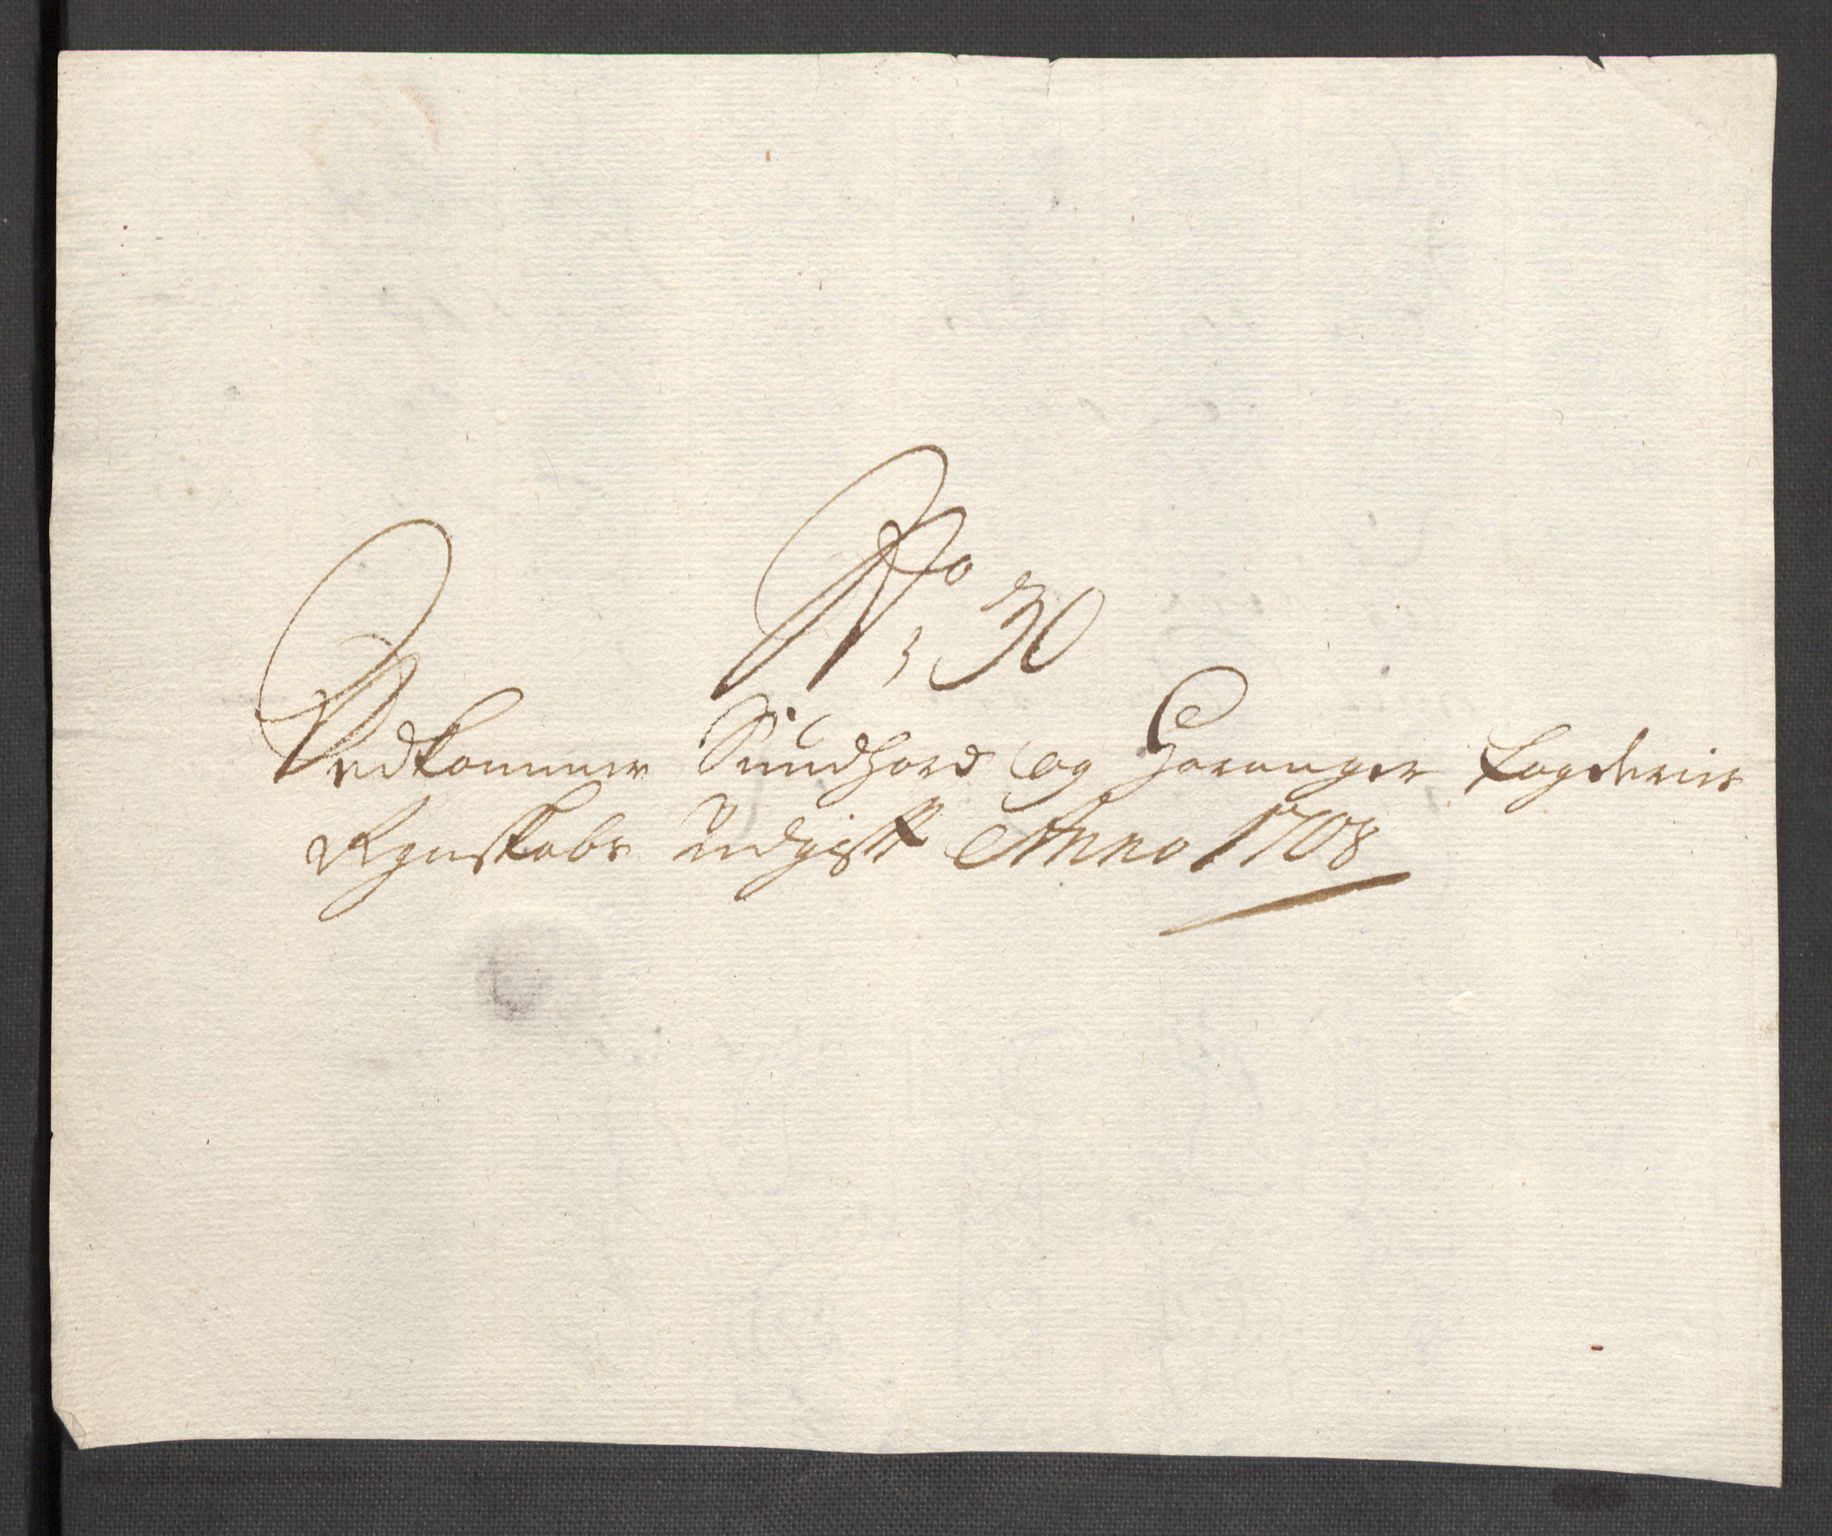 No 30
Vedkommer Sundhord og Haranger Fogderiers
Regnskabs Udgift Anno 1708